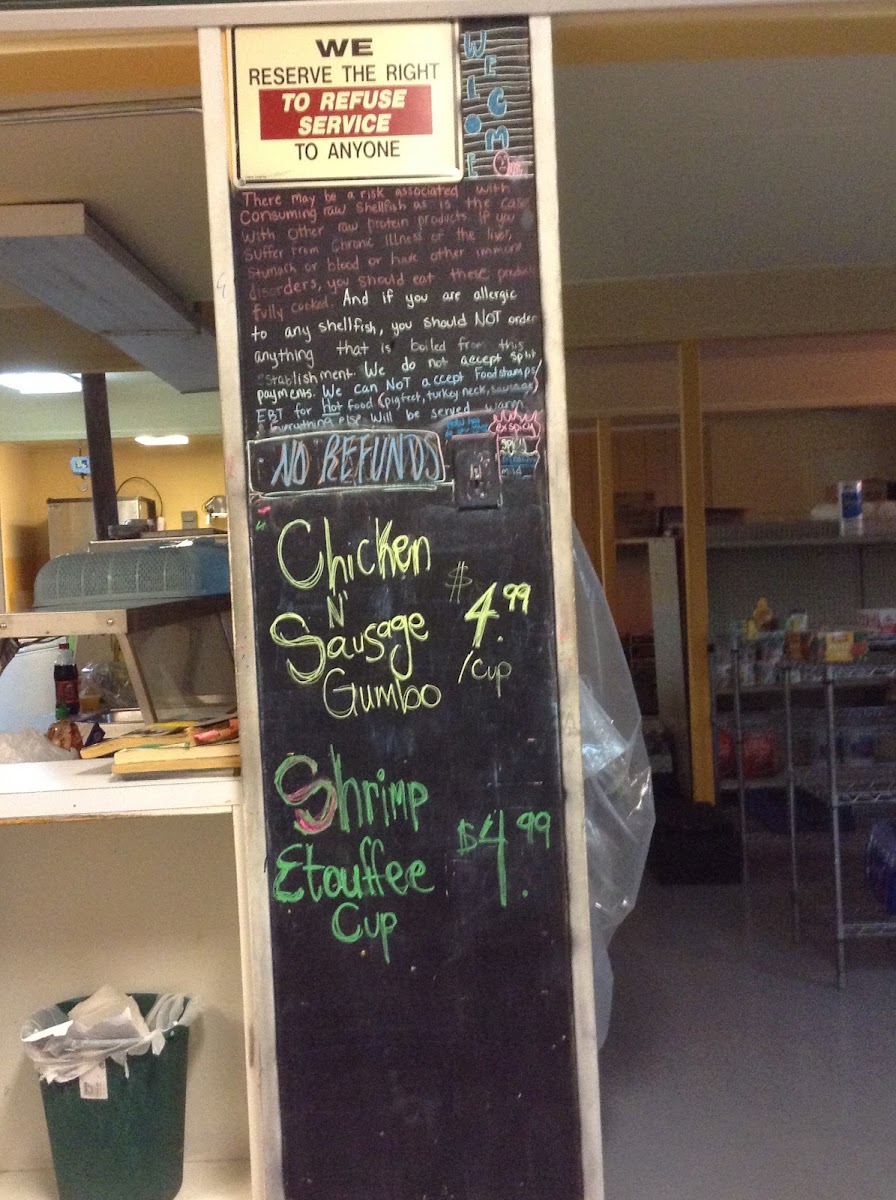 WE
RESERVE THE RIGHT
TO REFUSE
SERVICE
TO ANYONE
WELCOME
There may be a risk associated with
Consuming raw shellfish as is the case
with other raw protein products. If you
Suffer from Chronic Illness of the liver,
Stomach or blood or have other immune
disorders, you should eat these products
fully cooked. And if you are allergic
to any shellfish, you should NOT order
anything that is boiled from this
establishment. We do not accept Split
payments. We can NOT accept Foodstamps/
EBT for Hot Food (pigfeet, turkey neck, sausage)
Everything else will be served warm
ex spicy
Spicy
mild
NO REFUNDS
Chicken
N'
Sausage
Gumbo
$4.99
/cup
Shrimp
Etouffee
Cup
$4.99